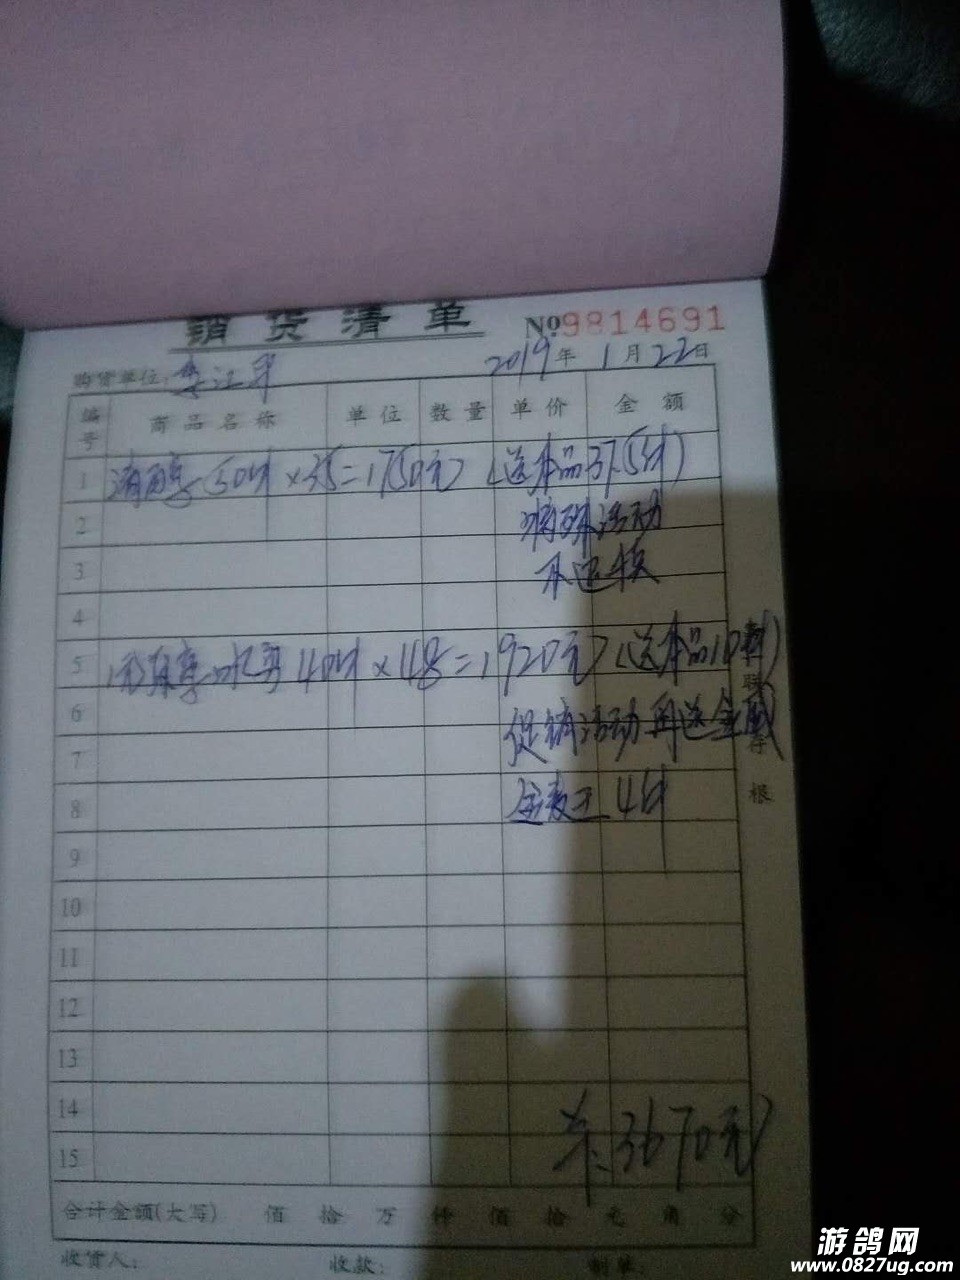 销货清单 №9814691
购货单位: 李江平 2019年1月22日
编号 商品名称 单位 数量 单价 金额
1 清醇50件×35=1750元 (送本品37.5件)
2 特殊活动
3 不退换
4
5 原醇 40件×48=1920元 (送本品10件)
6 促销活动再送金威
7
8 金麦王4件
9
10
11
12
13
14 共:3670元
15
存根
合计金额(大写) 佰 拾 万 仟 佰 拾 元 角 分
收货人: 收款: 制单:
游鸽网
www.0827ug.com